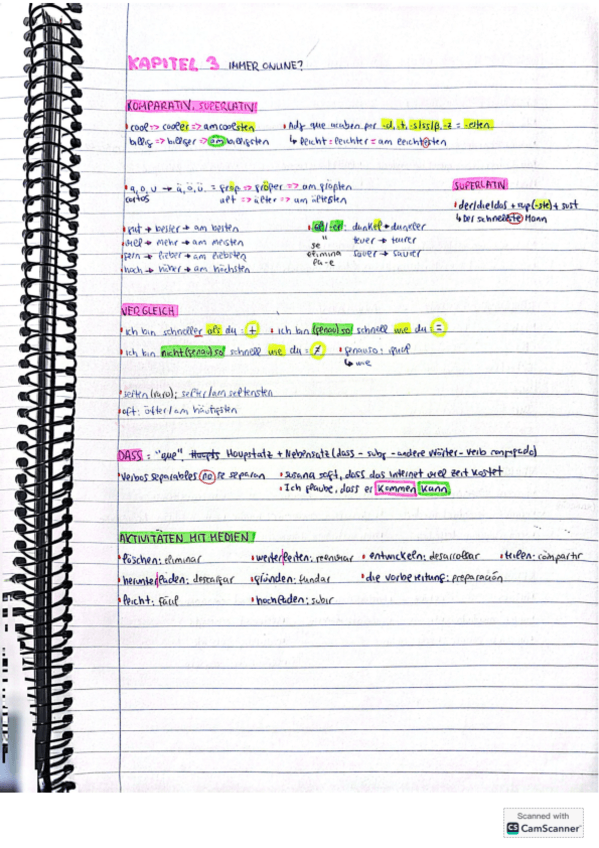 KAPITEL 3 IMMER ONLINE?
KOMPARATIV, SUPERLATIV
• cool => cooler => am coolsten • Adj que acaben por -d, t, -s/ss/β, -z = -esten
billig => billiger => am billigsten ↳ leicht = leichter = am leichtesten
• a, o, u → ä, ö, ü. = groβ => gröβer => am gröβten
cortos alt => älter => am ältesten
SUPERLATIV
• der/die/das + sup (-ste) + sust
↳ Der schnellste Mann
• gut → besser → am besten • el/-er: dunkel → dunkler
• viel → mehr → am meisten se " teuer → teurer
• gern → lieber → am liebsten elimina sauer → saurer
• hoch → höher → am höchsten la -e
VERGLEICH
• ich bin schneller als du: + • ich bin (genau) so schnell wie du: =
• ich bin nicht (genau) so schnell wie du: ≠ • genauso: igual
↳ wie
• selten (raro): selter/am seltensten
• oft: öfter/am häufigsten
DASS: "que". Haupstatz + Nebensatz (dass - subj - andere Wörter - verb conjugado)
• Verbos separables no se separan • Susana sagt, dass das Internet viel Zeit kostet
• Ich glaube, dass er kommen kann
AKTIVITÄTEN MIT MEDIEN
• löschen: eliminar • weiter|leiten: reenviar • entwickeln: desarrollar • teilen: compartir
• herunter|laden: descargar • gründen: fundar • die vorbereitung: preparación
• leicht: fácil • hochladen: subir
Scanned with
CS CamScanner